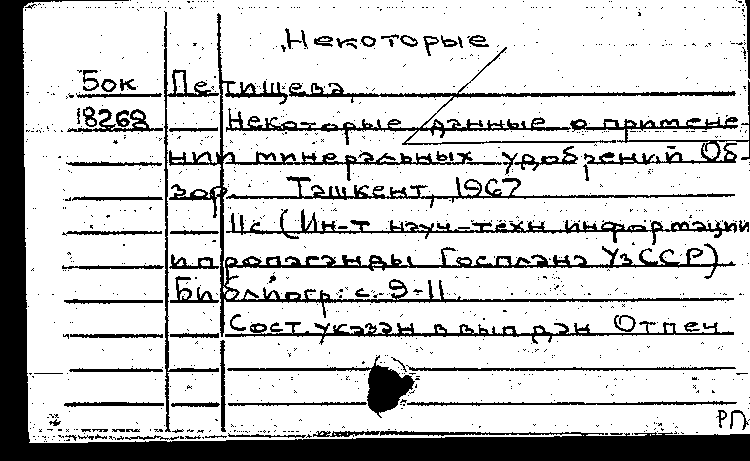 Некоторые
Бок Петищева,
18268 Некоторые данные о примене-
нии минеральных удобрений. Об-
зор. Ташкент, 1967
11с (Ин-т науч-техн информации
и пропаганды Госплана УзССР).
Библиогр: с. 9-11.
Сост. указан в вып дан Отпеч
РП